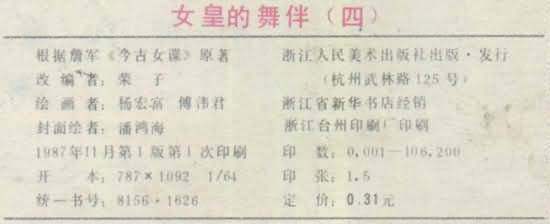 女皇的舞伴(四)
根据詹军《今古女谍》原著
改编者:荣 子
绘画者:杨宏富 傅伟君
封面绘者:潘鸿海
1987年11月第1版第1次印刷
开 本:787×1092 1/64
统一书号:8156·1626
浙江人民美术出版社出版·发行
(杭州武林路125号)
浙江省新华书店经销
浙江台州印刷厂印刷
印 数:0,001—106,200
印 张:1.5
定 价:0.31元